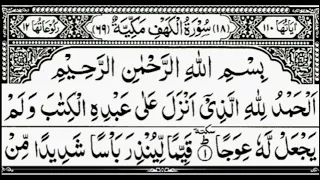 اٰیَاتُهَا ۱۱۰ (۱۸) سُوْرَةُ الْكَهْفِ مَكِّیَّةٌ (۶۹) رُكُوْعَاتُهَا ۱۲
بِسْمِ اللّٰهِ الرَّحْمٰنِ الرَّحِیْمِ
اَلْحَمْدُ لِلّٰهِ الَّذِیْۤ اَنْزَلَ عَلٰی عَبْدِهِ الْكِتٰبَ وَلَمْ
یَجْعَلْ لَّهٗ عِوَجًا ۜ ۱ قَیِّمًا لِّیُنْذِرَ بَاْسًا شَدِیْدًا مِّنْ